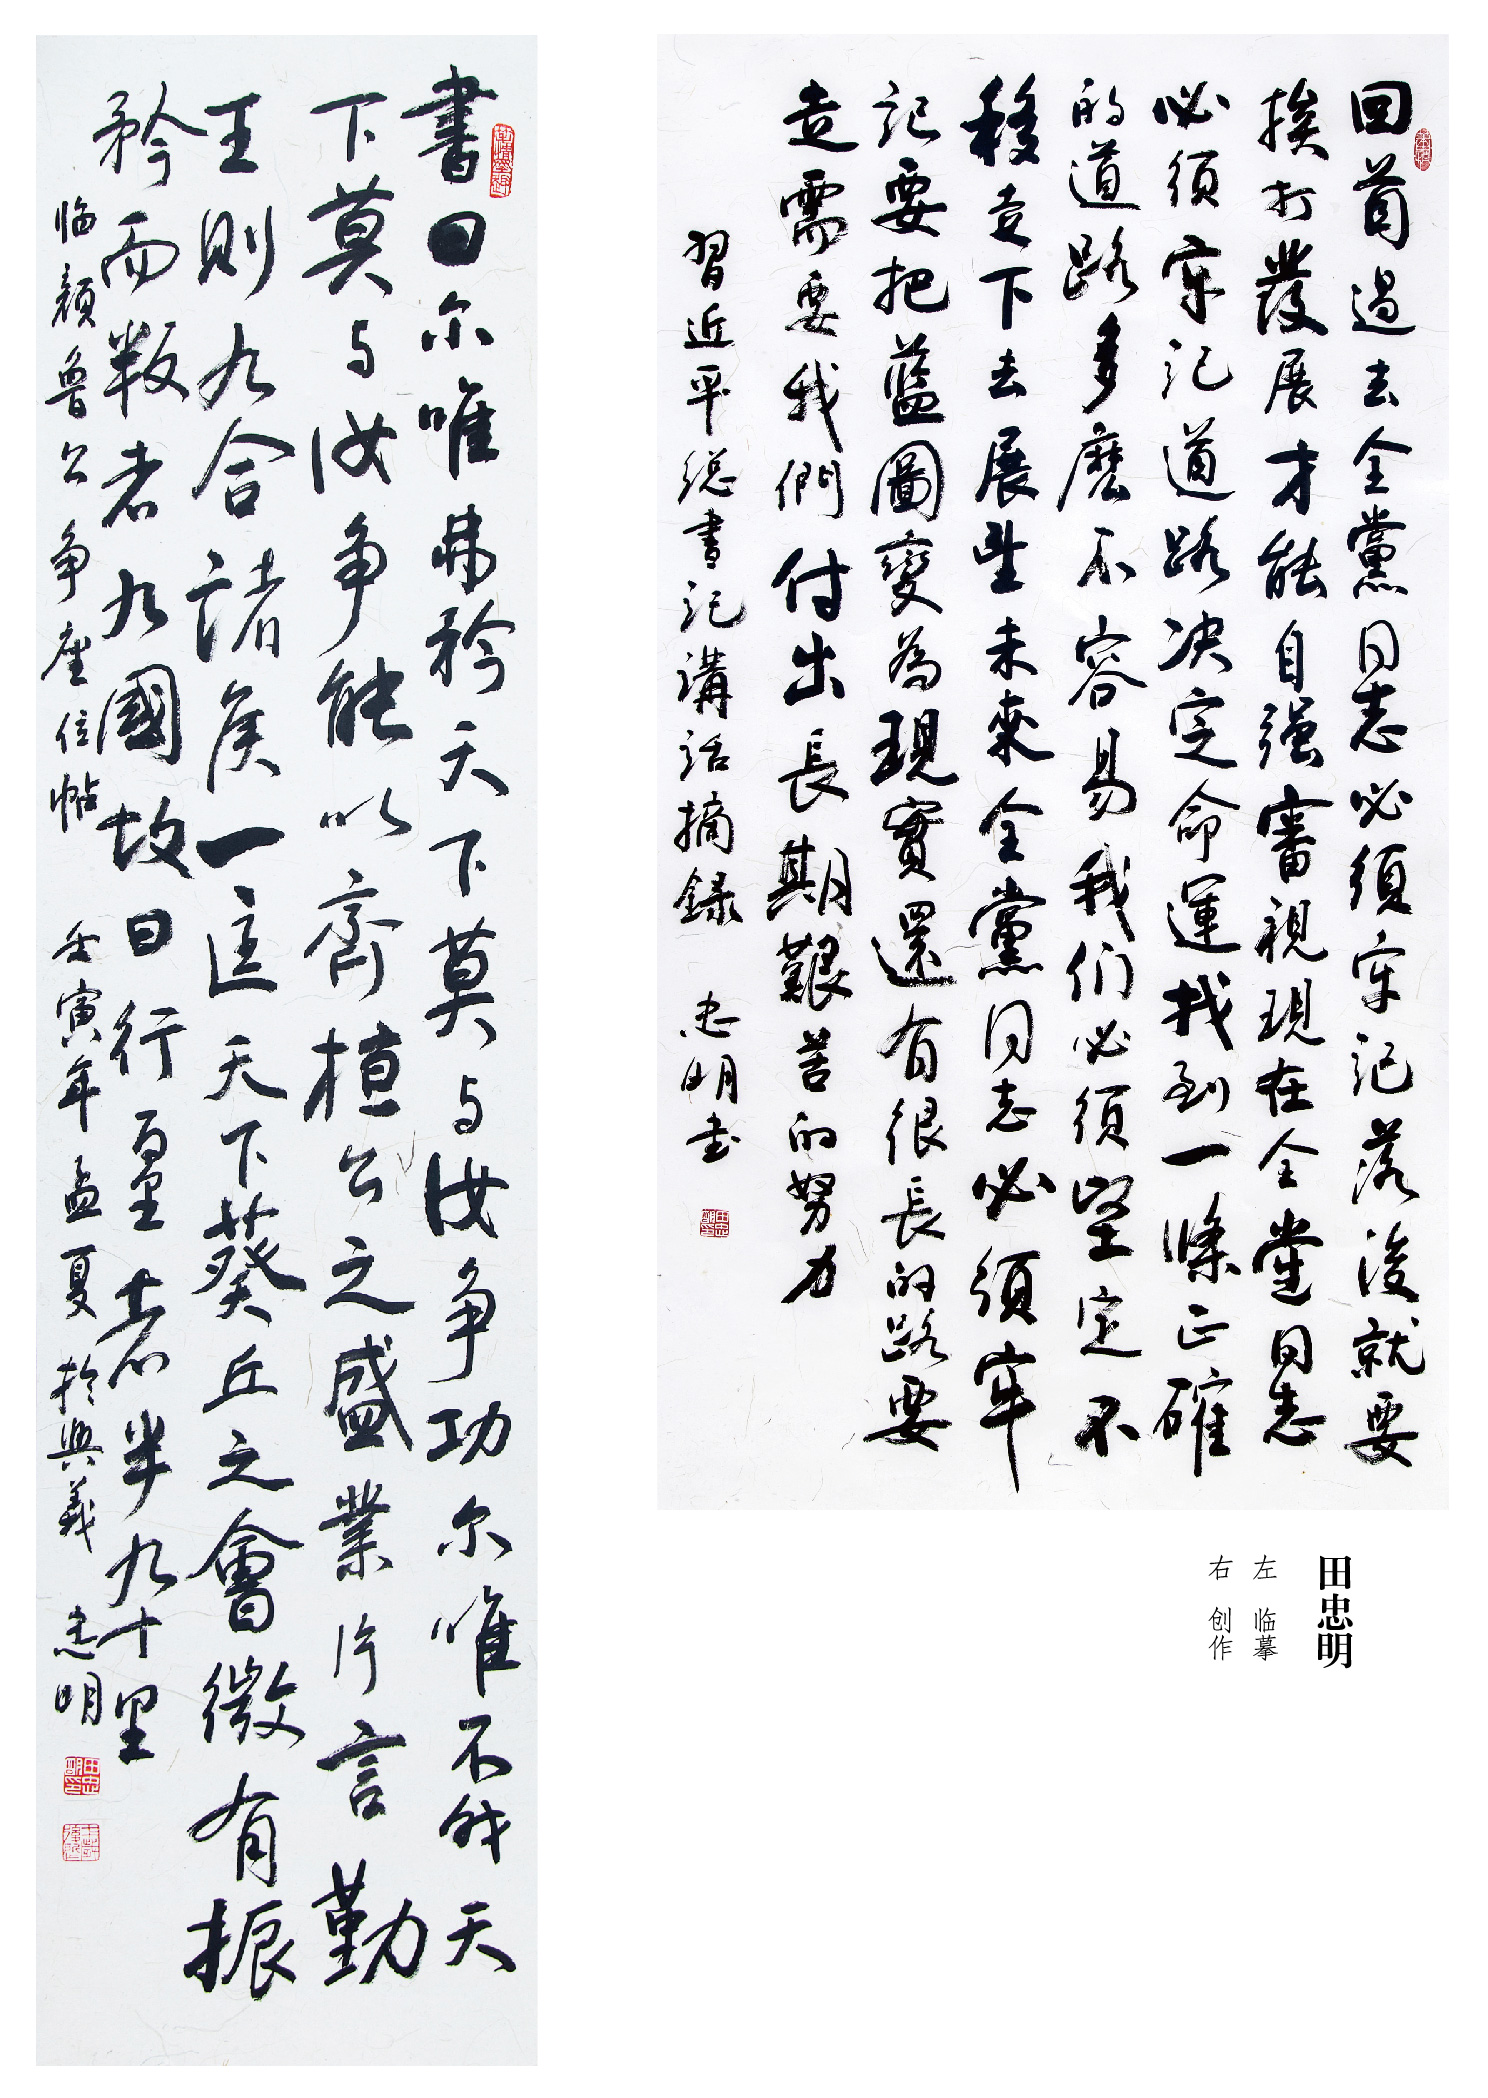 書曰尔唯弗矜天下莫与汝争功尔唯不伐天
下莫与汝争能以齊桓公之盛業片言勤
王則九合諸侯一匡天下葵丘之會微有振
矜而叛者九國故曰行百里者半九十里
临颜鲁公争座位帖 壬寅年孟夏於興義 忠明
回首過去全黨同志必須牢記落後就要
挨打發展才能自强審視現在全黨同志
必須牢記道路决定命運找到一條正確
的道路多麼不容易我们必須堅定不
移走下去展望未來全黨同志必須牢
記要把藍圖變為現實還有很長的路要
走需要我們付出長期艱苦的努力
習近平總書記講話摘録 忠明书
田忠明
左 临摹
右 创作